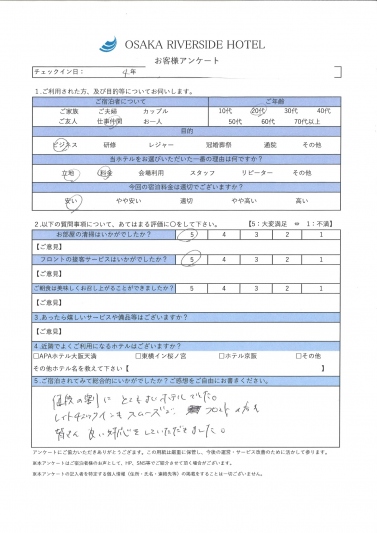 OSAKA RIVERSIDE HOTEL
お客様アンケート
チェックイン日： 4.年
1.ご利用された方、及び目的等についてお伺いします。
ご宿泊者について ご年齢
ご家族 ご夫婦 カップル 10代 20代 30代 40代
ご友人 仕事仲間 お一人 50代 60代 70代以上
目的
ビジネス 研修 レジャー 冠婚葬祭 通院 その他
当ホテルをお選びいただいた一番の理由は何ですか？
立地 料金 会場利用 スタッフ リピーター その他
今回の宿泊料金は適切でございますか？
安い やや安い 適切 やや高い 高い
2.以下の質問事項について、あてはまる評価に〇をして下さい。 【5：大変満足 ⇔ 1：不満】
お部屋の清掃はいかがでしたか？ 5 4 3 2 1
【ご意見】
フロントの接客サービスはいかがでしたか？ 5 4 3 2 1
【ご意見】
ご朝食は美味しくお召し上がることができましたか？ 5 4 3 2 1
【ご意見】
3.あったら嬉しいサービスや備品等はございますか？
【ご意見】
4.近隣でよくご利用になるホテルはございますか？
□APAホテル大阪天満 □東横イン桜ノ宮 □ホテル京阪 □その他
その他ホテル名を教えて下さい【 】
5.ご宿泊されてみて総合的にいかがでしたか？ご感想をご自由にお書きください。
値段の割に とても ホテルでした。
スムーズで フロントの方も
皆さん 良い対応をしていただきました。
アンケートにご協力いただきありがとうございます。この用紙は厳重に保管し、今後の運営・サービス改善のために活かして参ります。
※本アンケートはご宿泊者様のお声として、HP、SNS等でご紹介させて頂く場合がございます。
※本アンケートの記入者を特定する個人情報（住所・氏名・連絡先等）の掲載をすることは一切ございません。